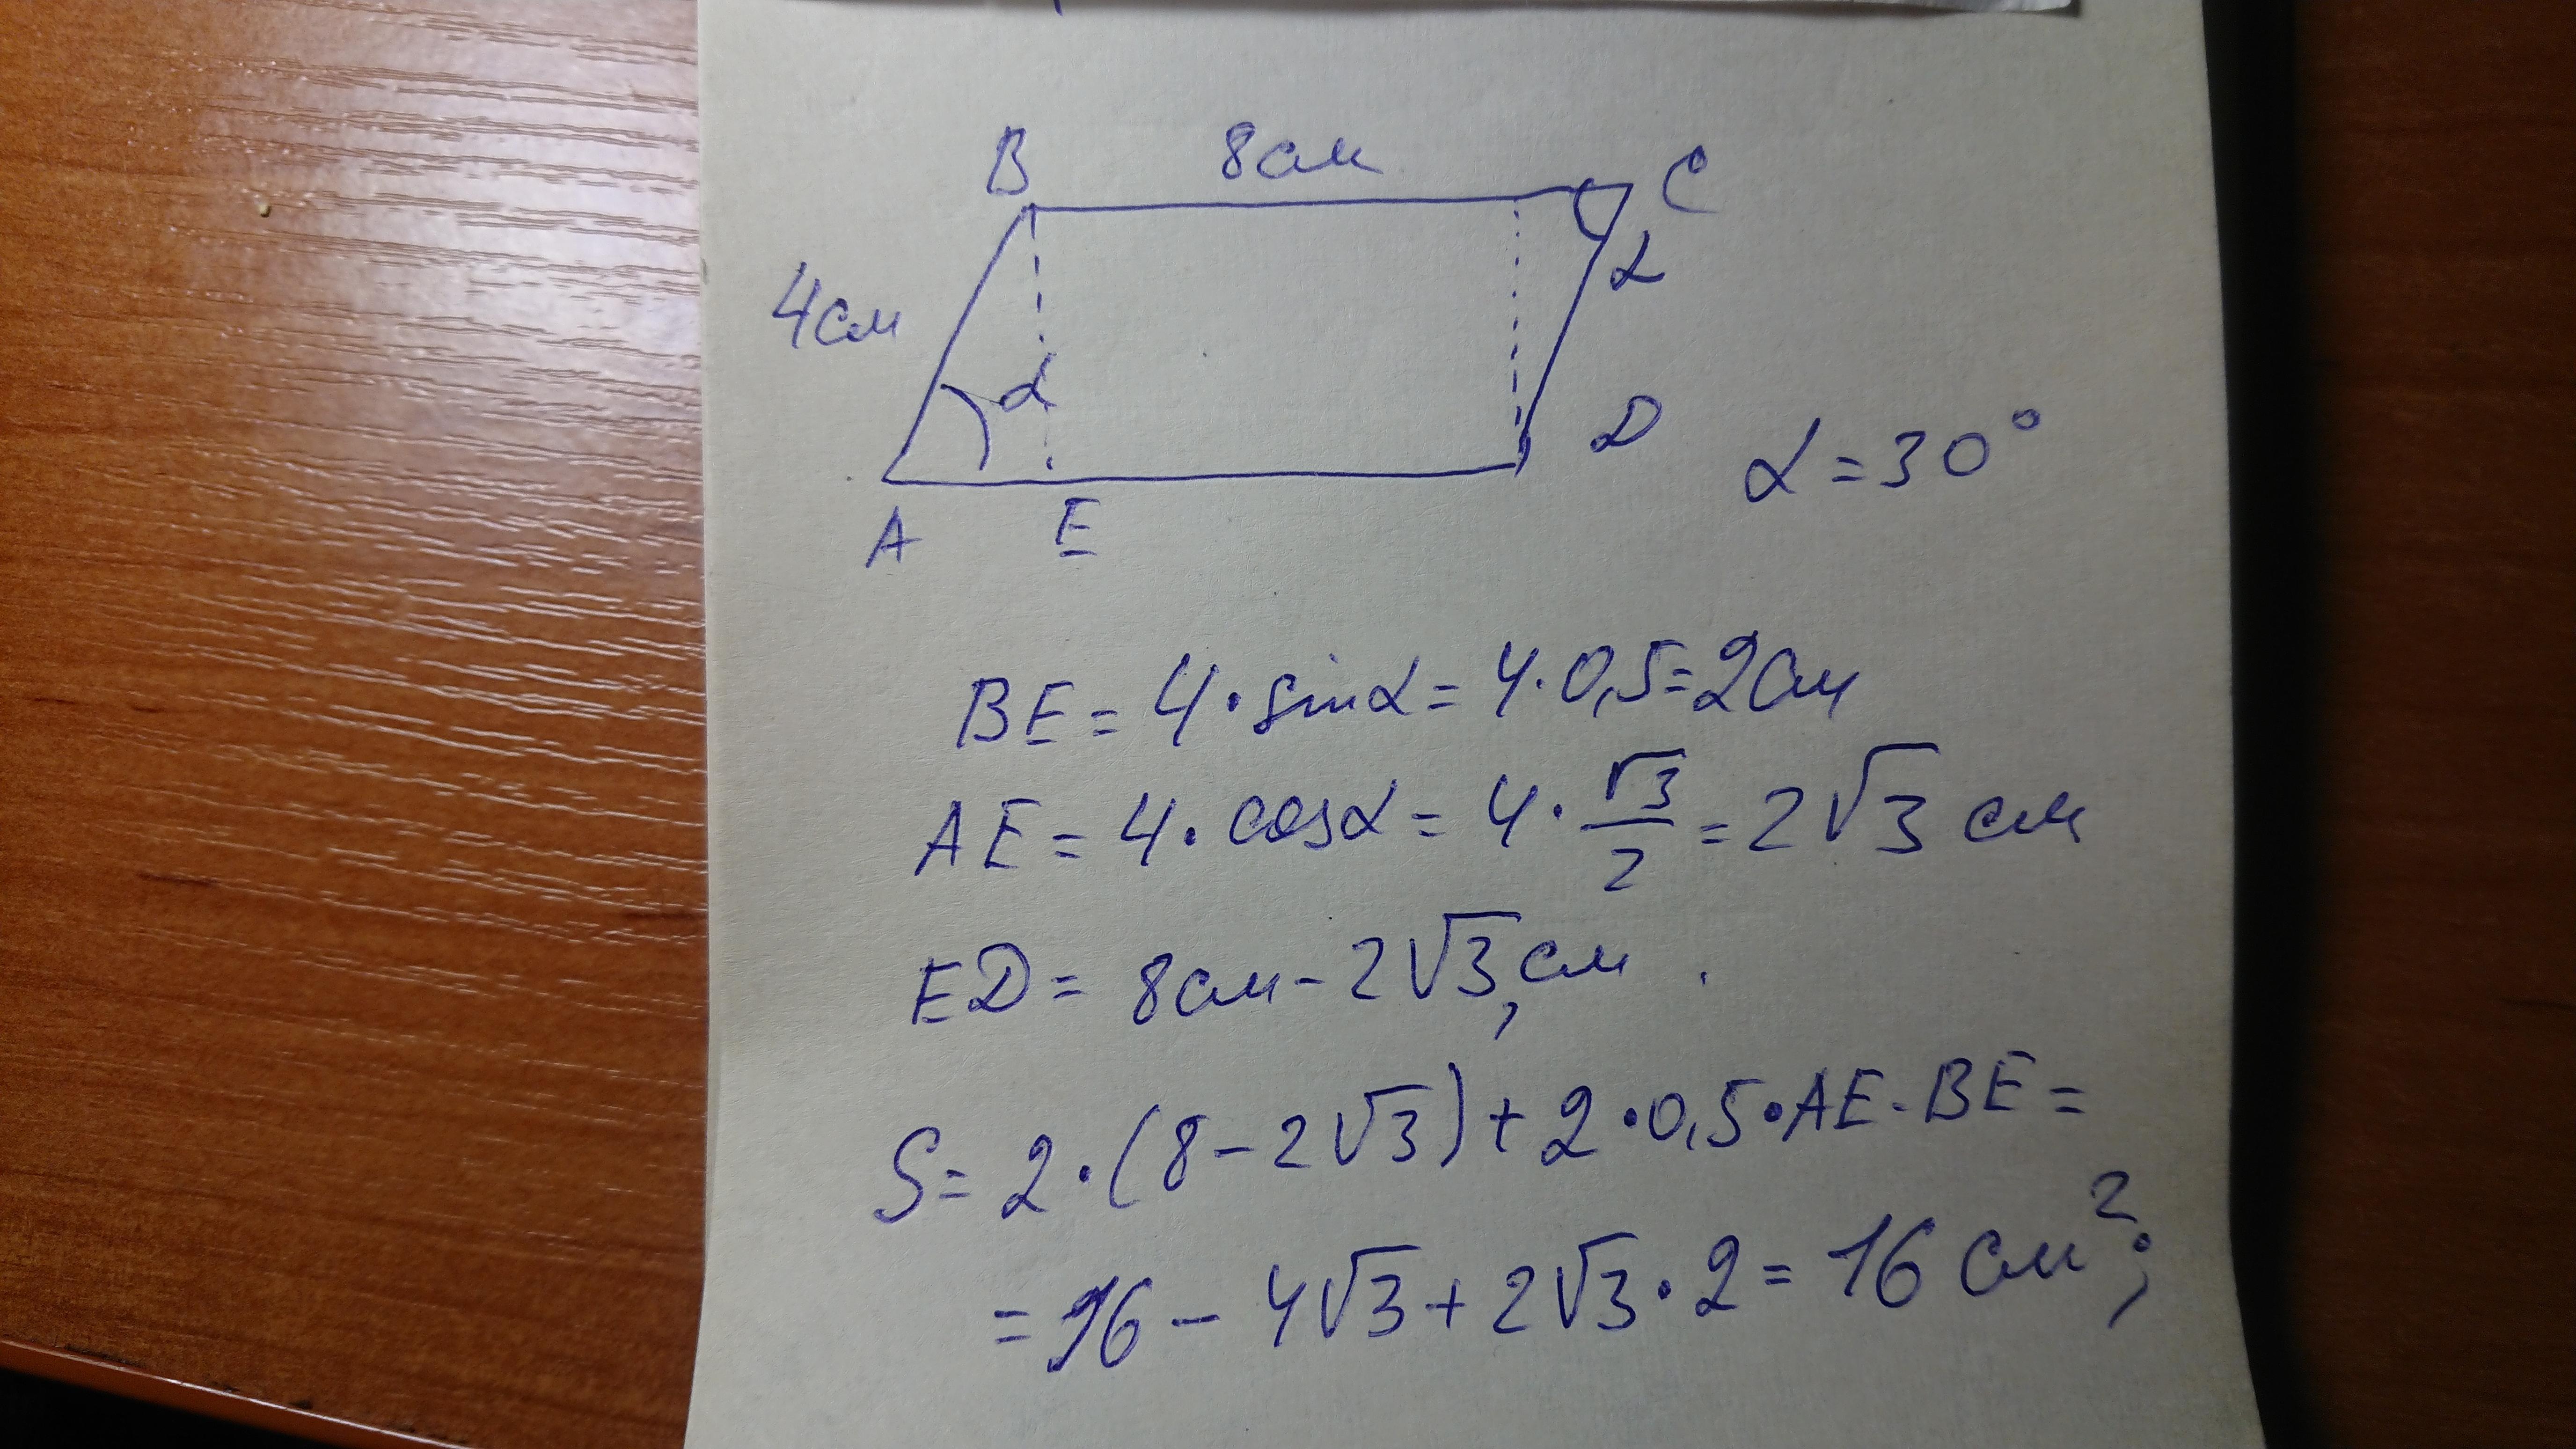 B 8см C
4см α α
D α = 30°
A E
BE = 4 · sinα = 4 · 0,5 = 2см
AE = 4 · cosα = 4 · √3/2 = 2√3 см
ED = 8см - 2√3, см .
S = 2 · (8 - 2√3) + 2 · 0,5 · AE · BE =
= 16 - 4√3 + 2√3 · 2 = 16 см²;